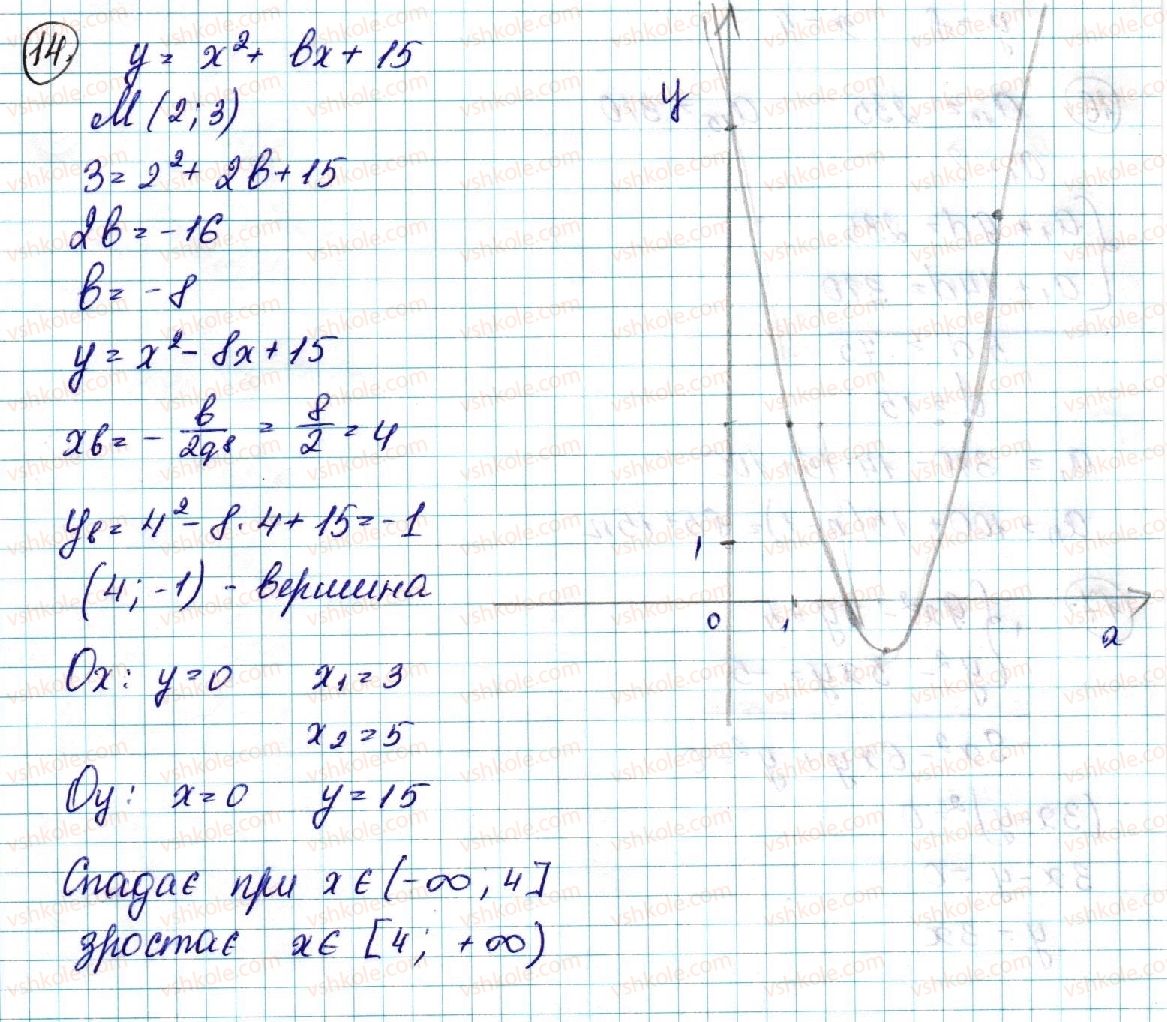 14.
y = x² + bx + 15
M (2; 3)
3 = 2² + 2b + 15
2b = -16
b = -8
y = x² - 8x + 15
xb = - b/2a = 8/2 = 4
yb = 4² - 8 · 4 + 15 = -1
(4; -1) - вершина
Ox: y = 0 x₁ = 3
x₂ = 5
Oy: x = 0 y = 15
Спадає при x ∈ (-∞; 4]
зростає x ∈ [4; +∞)
y
1
0 1 x
vshkole.com